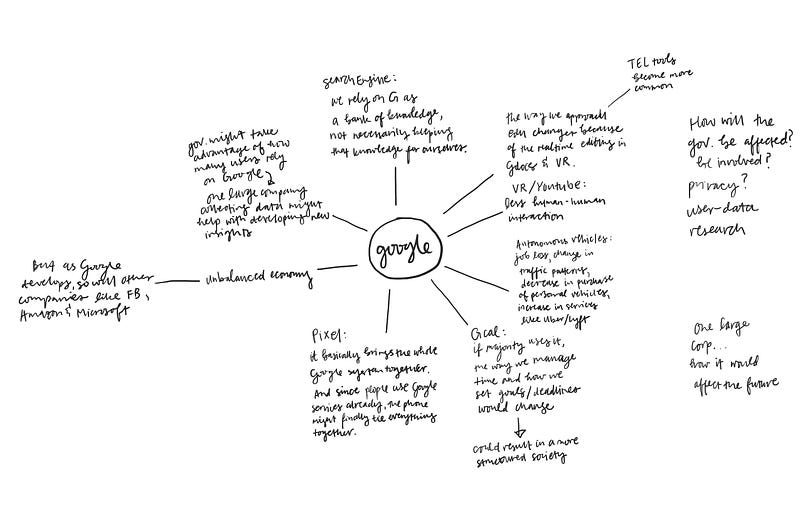 search Engine:
we rely on G as
a bank of knowledge,
not necessarily keeping
that knowledge for ourselves.
TEL tools
become more
common
the way we approach
edu changes because
of the realtime editing in
Gdocs & VR.
VR/Youtube:
less human-human
interaction
Autonomous vehicles:
job loss, change in
traffic patterns,
decrease in purchase
of personal vehicles,
increase in services
like Uber/Lyft
Gcal:
if majority uses it,
the way we manage
time and how we
set goals/deadlines
would change
could result in a more
structured society
Pixel:
it basically brings the whole
Google system together.
And since people use Google
services already, the phone
might finally tie everything
together.
unbalanced economy
But as Google
develops, so will other
companies like FB,
Amazon & Microsoft
gov. might take
advantage of how
many users rely
on Google
one large company
collecting data might
help with developing new
insights
google
How will the
gov. be affected?
be involved?
privacy?
user-data
research
one large
corp...
how it would
affect the future